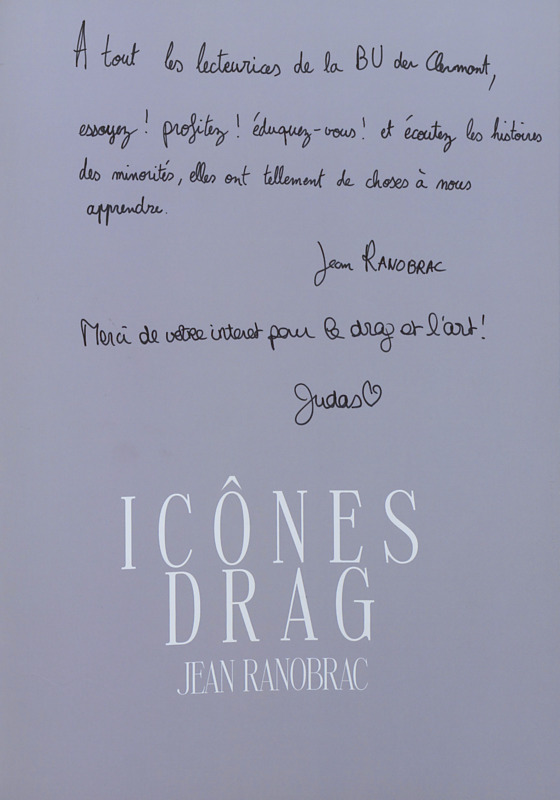 A tout les lecteurices de la BU der Clermont,
essayez ! profitez ! éduquez-vous ! et écoutez les histoires
des minorités, elles ont tellement de choses à nous
apprendre.
Jean RANOBRAC
Merci de votre interet pour le drag et l'art !
Judas♡
ICÔNES
DRAG
JEAN RANOBRAC